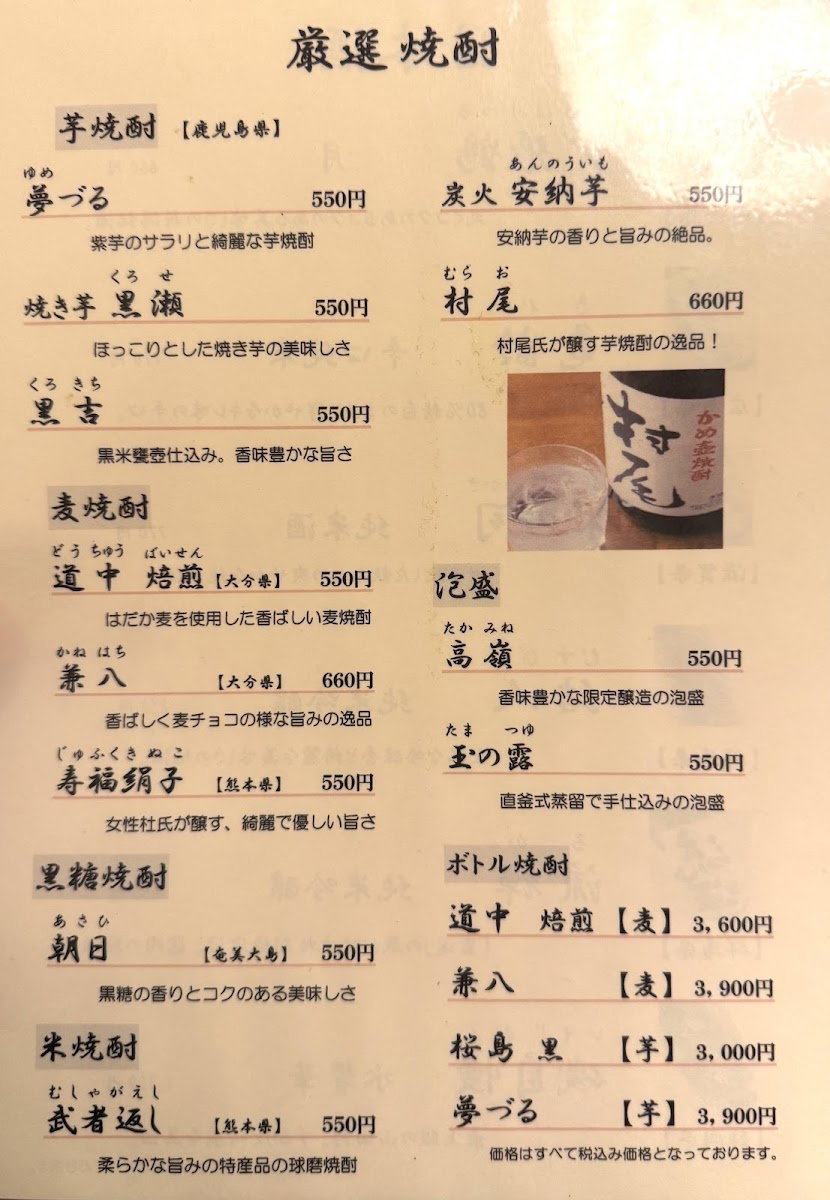 厳選焼酎
芋焼酎 【鹿児島県】
ゆめ
夢づる 550円
紫芋のサラリと綺麗な芋焼酎
くろ せ
焼き芋 黒瀬 550円
ほっこりとした焼き芋の美味しさ
くろ きち
黒吉 550円
黒米甕壺仕込み。香味豊かな旨さ
麦焼酎
どう ちゅう ばいせん
道中 焙煎【大分県】 550円
はだか麦を使用した香ばしい麦焼酎
かね はち
兼八 【大分県】 660円
香ばしく麦チョコの様な旨みの逸品
じゅふくきぬこ
寿福絹子 【熊本県】 550円
女性杜氏が醸す、綺麗で優しい旨さ
黒糖焼酎
あさひ
朝日 【奄美大島】 550円
黒糖の香りとコクのある美味しさ
米焼酎
むしゃがえし
武者返し 【熊本県】 550円
柔らかな旨みの特産品の球磨焼酎
あんのういも
炭火 安納芋 550円
安納芋の香りと旨みの絶品。
むら お
村尾 660円
村尾氏が醸す芋焼酎の逸品！
かめ壺焼酎
村尾
泡盛
たか みね
高嶺 550円
香味豊かな限定醸造の泡盛
たま つゆ
玉の露 550円
直釜式蒸留で手仕込みの泡盛
ボトル焼酎
道中 焙煎 【麦】 3,600円
兼八 【麦】 3,900円
桜島 黒 【芋】 3,000円
夢づる 【芋】 3,900円
価格はすべて税込み価格となっております。